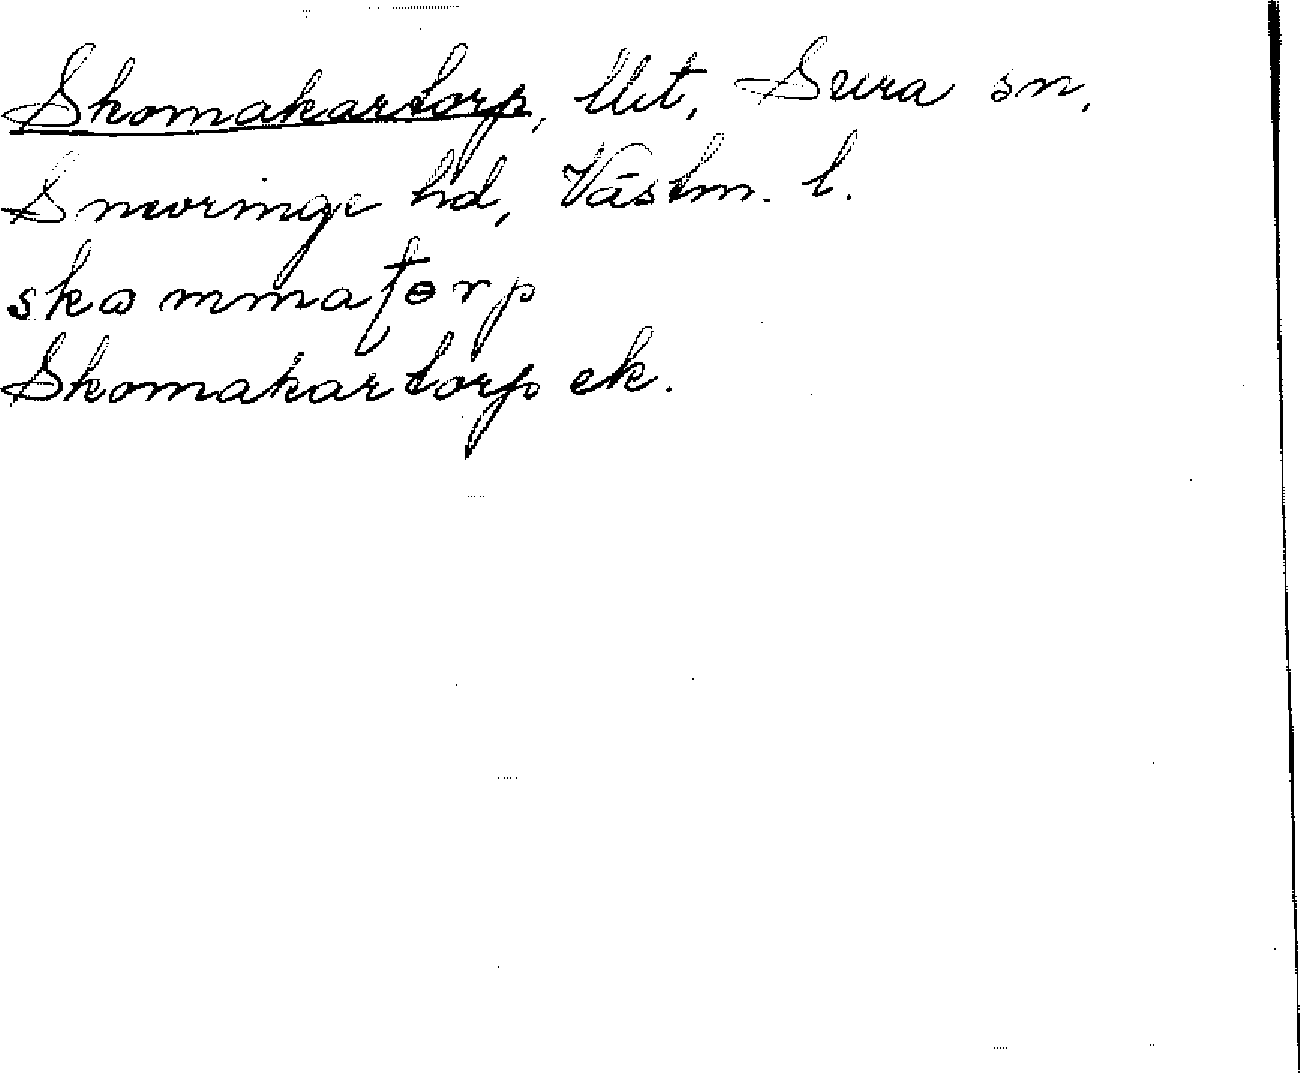 Skomakartorp, lht, Sura sn,
Snevringe hd, Västm. l.
skommaʈɵrp
Skomakartorp ek.